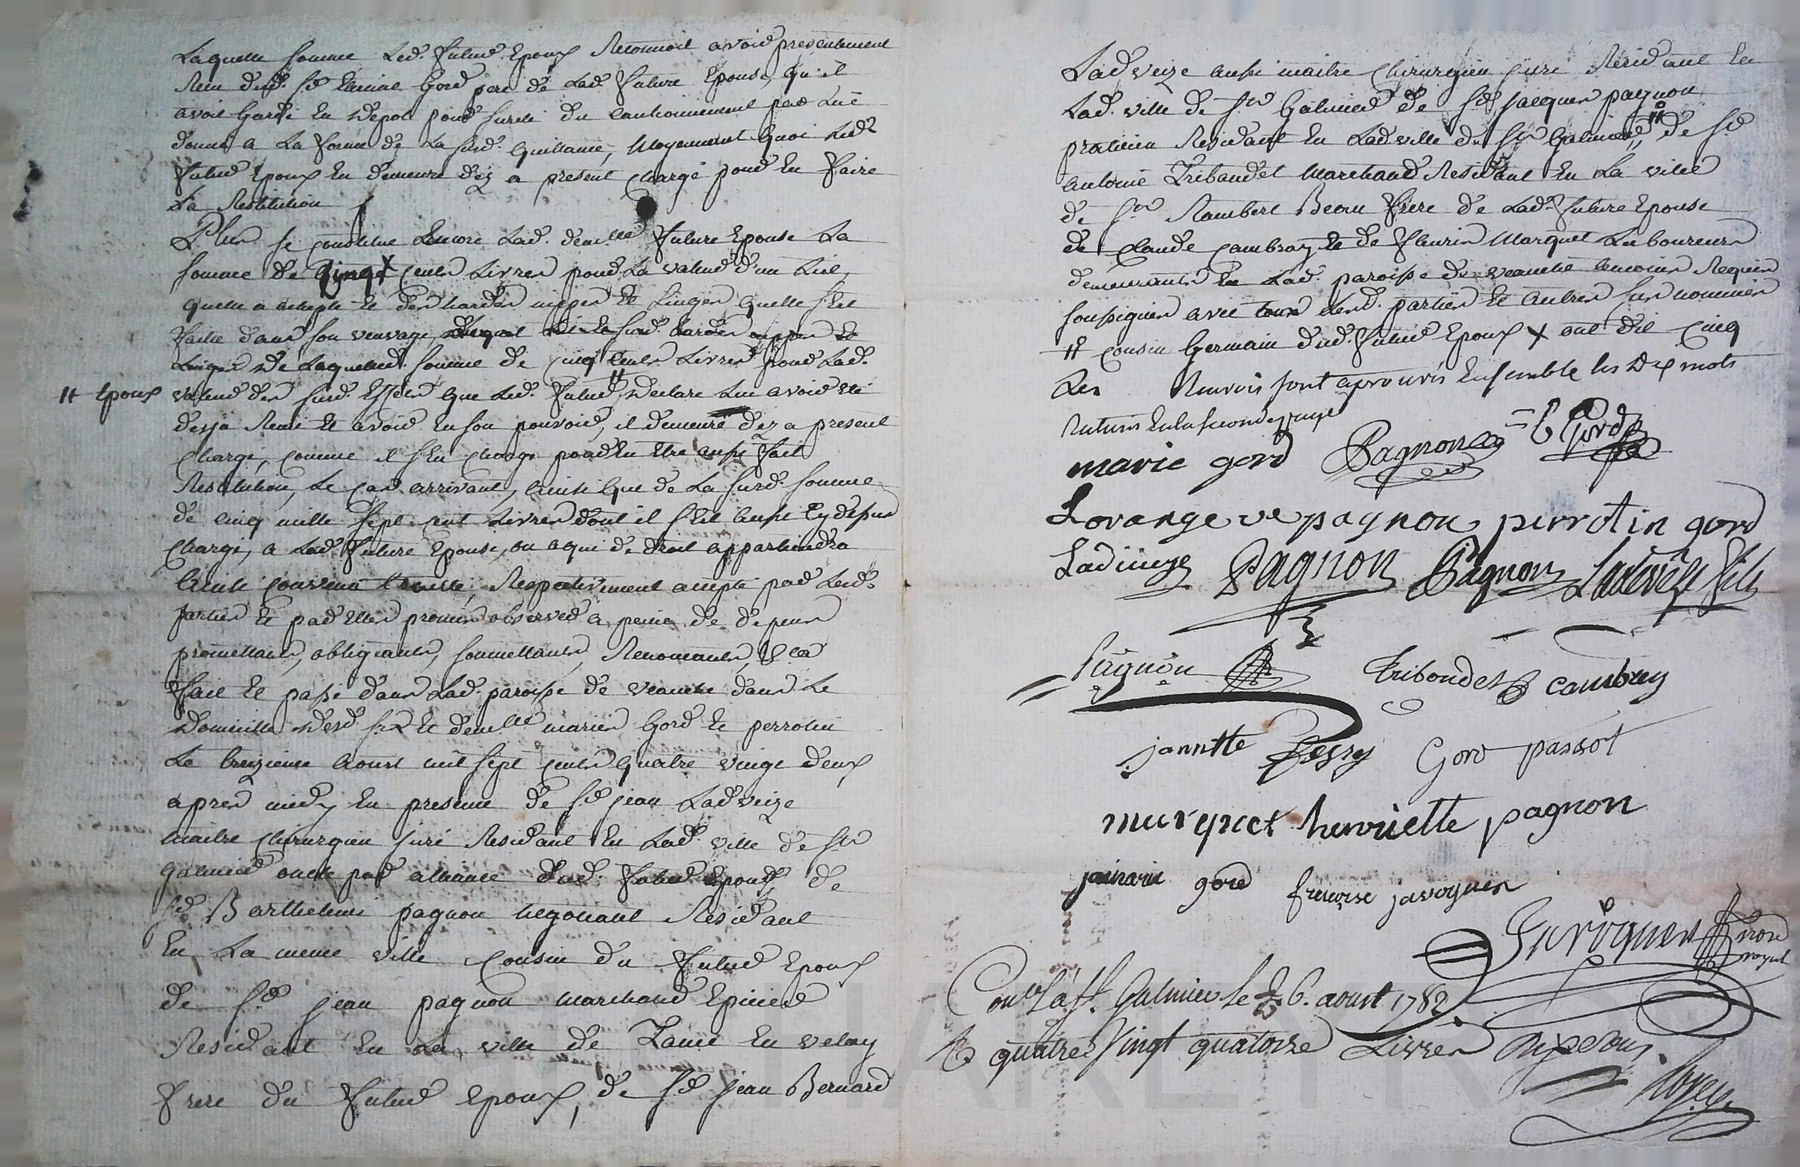 Laquelle somme led. futur Epoux Reconnoit avoir presentement
Reçu dud. Sr Gord pere de Lad. future Epouse, qu'il
avoit Gardé En depot pour sureté du cautionnement par Lui
donné a La forme de La susd. quittance, Moyennant quoi Led.
futur Epoux En demeure dez a present chargé pour En faire
La Restitution
Plus se constitue Encore Lad. demlle future Epouse La
somme de Cinq Cents Livres pour La valeur d'un Lit,
quelle a achepté Et des hardes nippes Et Linges quelle s'est
faite dans son veuvage,
Linges De Laquelle somme de Cinq Cents Livres pour Lad.
# Epoux valeur des susd. Effets que Led. futur # Declare Lui avoir Eté
desja Remis Et avoir En son pouvoir, il demeure dez a present
Chargé, comme il s'En charge pour En Etre aussi fait
Restitution, Le Cas arrivant, Ainsi que de La susd. somme
de Cinq mille sept cent Livres dont il s'Est aussi Cy depuis
Chargé, a Lad. future Epouse, ou a qui de droit appartiendra
Ainsi Convenu Respectivement accepté par Lesd.
parties Et par Elles promis observer a peine de depens
promettants, obligeants, soumettants, Renonceants, &ca
fait Et passé dans Lad. paroisse de veauche dans Le
Domicille Desd. Sr Et demlle mariés Gord Et perrotin
Le treizieme Aoust mil sept cents quatre vingt deux
apres midy En presence de Sr jean Ladveize
maitre chirurgien juré Residant En Lad. ville de St
galmier oncle par alliance dud. futur Epoux, de
Sr Barthelemi pagnon negotiant Residant
En La meme ville Cousin du futur Epoux
de Sr jean pagnon marchand Epicier
Residant En La ville de En velay
frere du futur Epoux, de Sr jean Bernard
Ladveize aussi maitre chirurgien juré Residant En
Lad. ville de St Galmier de Sr jacques pagnon
praticien Residant En Lad ville de St Galmier # de Sr
Antoine Tribaudet Marchand Residant En La ville
de St Rambert Beau frère de Lad. future Epouse
de Claude Cambray Et de fleuris Marquet Laboureurs
demeurants En Lad. paroisse de veauche temoins Requis
soussignés avec tous Lesd. parties Et autres sus nommés
# Cousin Germain dud. futur Epoux X ont dit Cinq
Les Renvois sont aprouvés Ensemble les Dix mots

marie gord Pagnon Gord
Lorange ve pagnon perrotin gord
Ladveze Pagnon Pagnon Ladvèze fils
Pagnon Tribondet cambrey
jannette Gord passot
murquet henriette pagnon
gord javogues
Javogues
nore royal
Conlé a St. Galmier le 26. aoust 1782
R quatre vingt quatorze Livres dix sous.